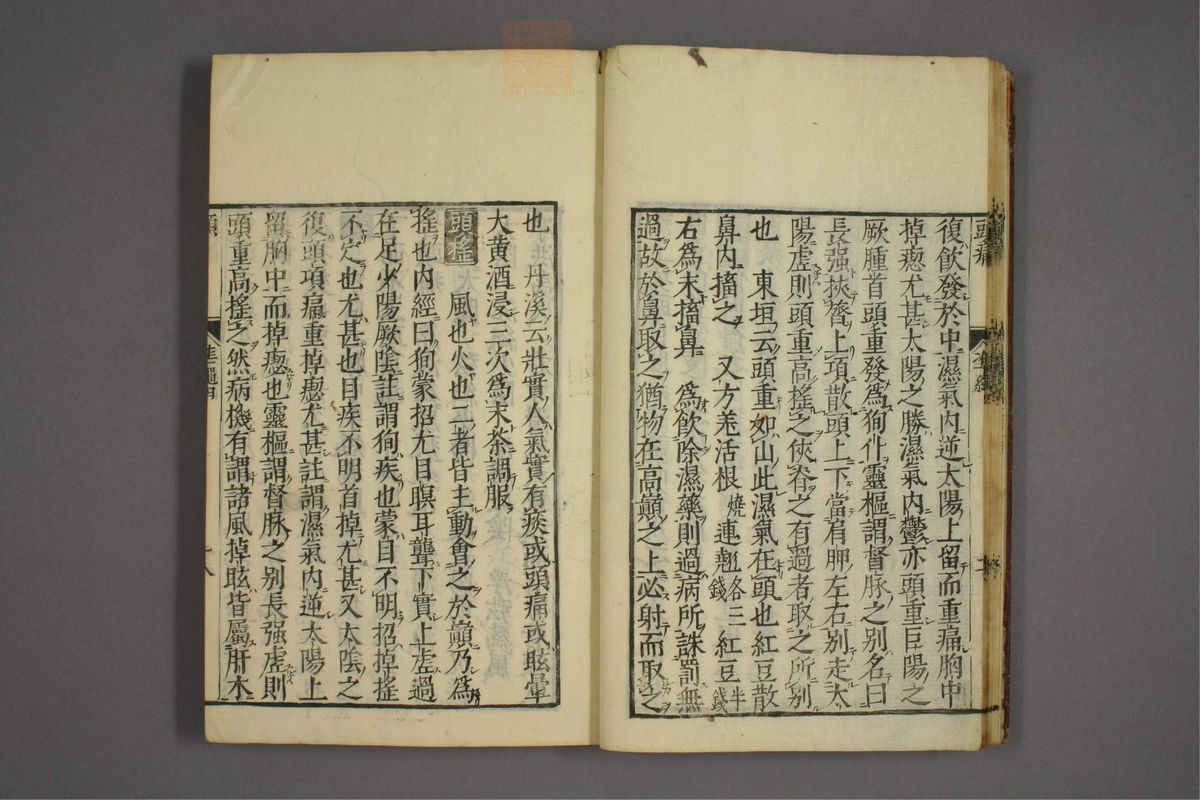 頭痛
復飲發於中濕氣內逆太陽上留而重痛胸中
掉瘛尤甚太陽之勝濕氣內鬱亦頭重巨陽之
厥腫首頭重發爲㫬仆靈樞謂督脉之别名曰
長强挾膂上項散頭上下當肩胛左右别走太
陽虛則頭重高搖之俠脊之有過者取之所别
也 東垣云頭重如山此濕氣在頭也紅豆散
鼻内搐之 又方羗活根燒連翹各三錢紅豆半錢
右爲末搐鼻 爲飲除濕藥則過病所誅罰無
過故於鼻取之猶物在高巔之上必射而取之
也 丹溪云壯實人氣實有痰或頭痛或眩暈
大黄酒浸三次爲末茶調服
頭搖 風也火也二者皆主動會之於巔乃爲
搖也内經曰狥蒙招尤目瞑耳聾下實上虛過
在足少陽厥陰註謂狥疾也蒙目不明招掉搖
不定也尤甚也目疾不明首掉尤甚又太陰之
復頭項痛重掉瘛尤甚註謂濕氣内逆太陽上
留胸中而掉瘛也靈樞謂督脉之别長强虛則
頭重高搖之然病機有謂諸風掉眩皆屬肝木